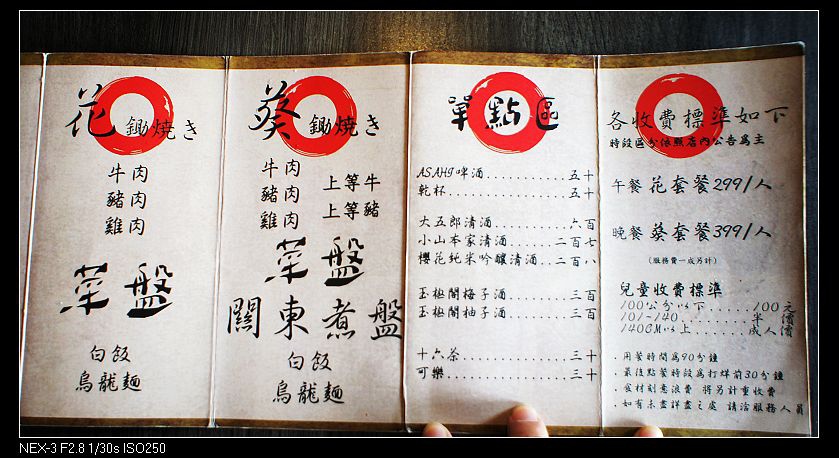 花 鋤焼き
牛肉
豬肉
雞肉
菜盤
白飯
烏龍麵
葵 鋤焼き
牛肉
豬肉
雞肉
上等牛
上等豬
菜盤
關東煮盤
白飯
烏龍麵
單點區
ASAHI啤酒............五十
乾杯..................五十
大五郎清酒...........六百
小山本家清酒......二百七
櫻花純米吟釀清酒..二百八
玉極閣梅子酒........三百
玉極閣柚子酒........三百
十六茶................三十
可樂..................三十
各收費標準如下
特段區分依照店內公告為主
午餐 花套餐299/人
晚餐 葵套餐399/人
(服務費一成另計)
兒童收費標準
100公分以下.......100元
101~140..........半價
140CM以上.......成人價
.用餐時間為90分鐘
.最後點餐時段為打烊前30分鐘
.食材刻意浪費 將另計重收費
.如有未盡詳盡之處 請洽服務人員
NEX-3 F2.8 1/30s ISO250